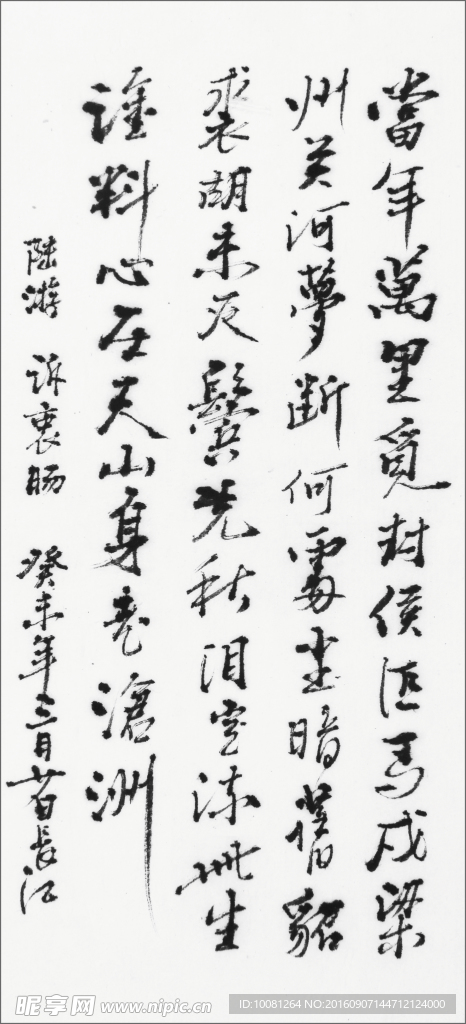 當年萬里覓封侯匹馬戍梁
州关河夢断何處尘暗舊貂
裘胡未灭鬓先秋泪空流此生
誰料心在天山身老滄洲
陆游 訴衷肠 癸未年三月廿日長江
昵享网 www.nipic.cn
ID:10081264 NO:20160907144712124000